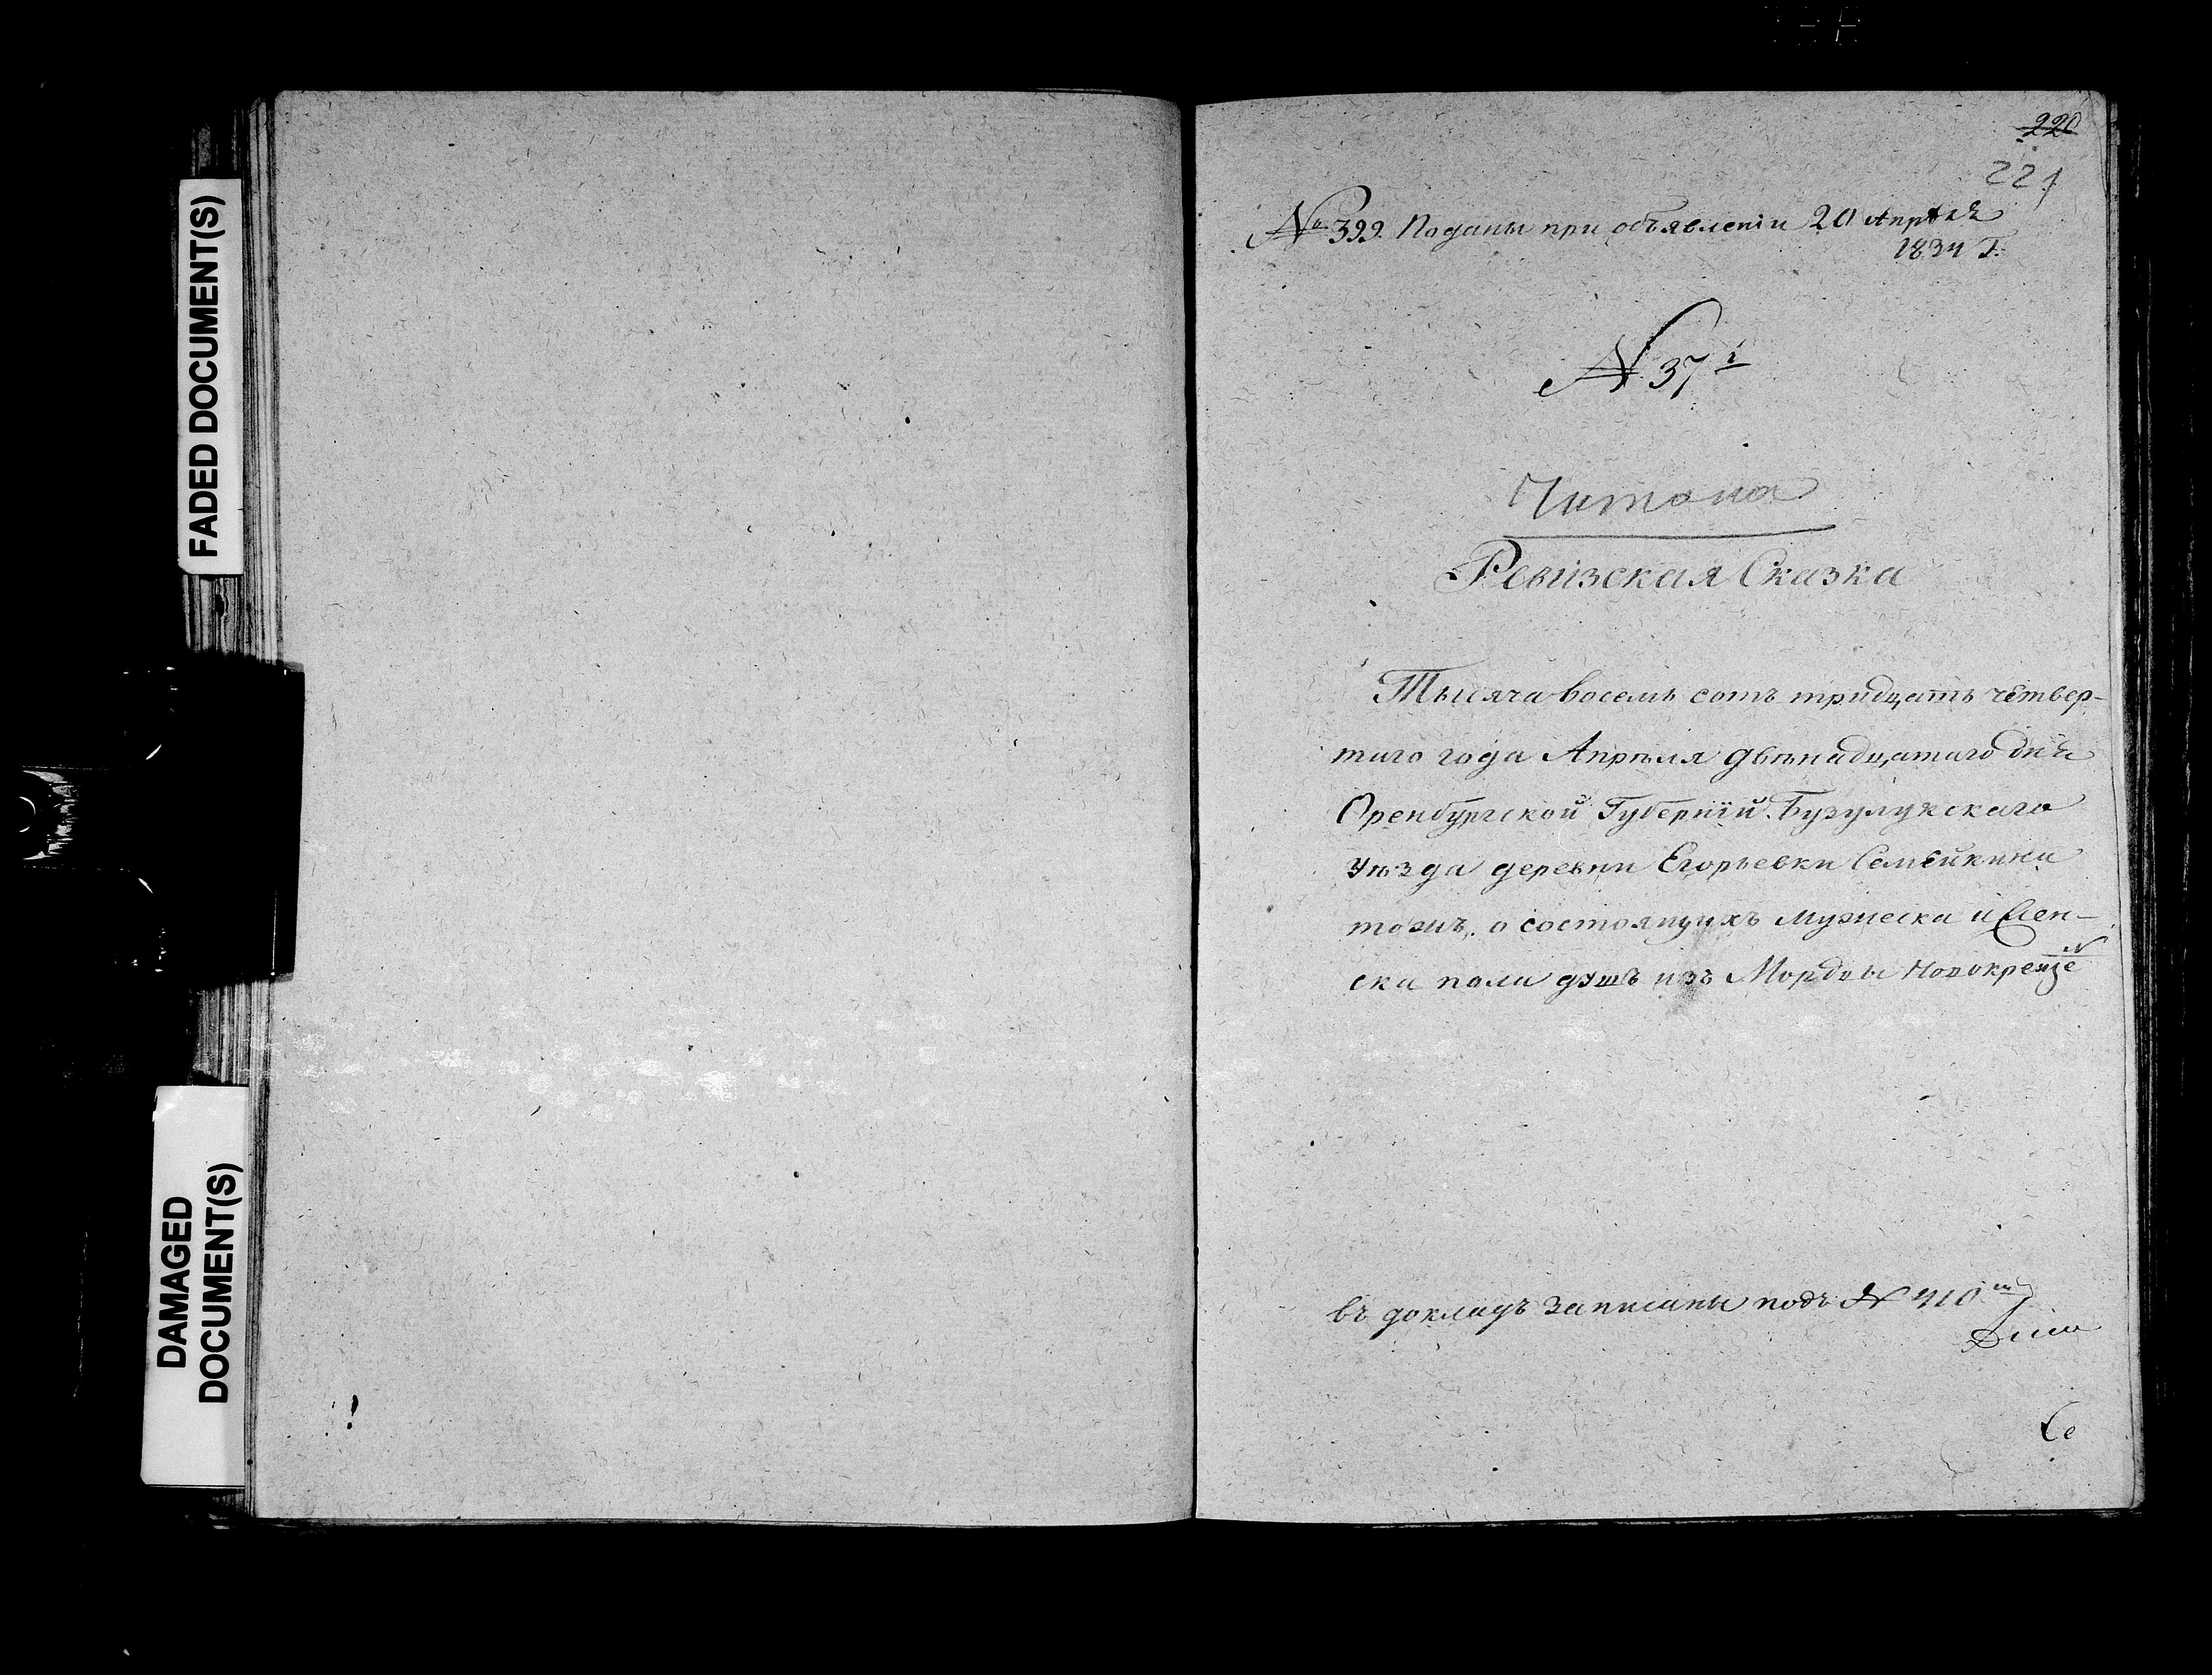 FADED DOCUMENT(S)
DAMAGED
DOCUMENT(S)
220
221
№ 399 Поданы при объявленіи 20 Апрѣля
1834 Г.
№ 37й
Читана
Ревизская Сказка
Тысяча восемь сотъ тридцать четвер-
таго года Апрѣля двѣнадцатаго дня
Оренбургской Губерніи Бузулукскаго
уѣзда деревни Егорьевки Семейкина
тожъ, о состоящихъ мужеска и жен-
ска пола душъ изъ Мордвы Новокреще
въ докладъ записаны подъ № 410м
Се